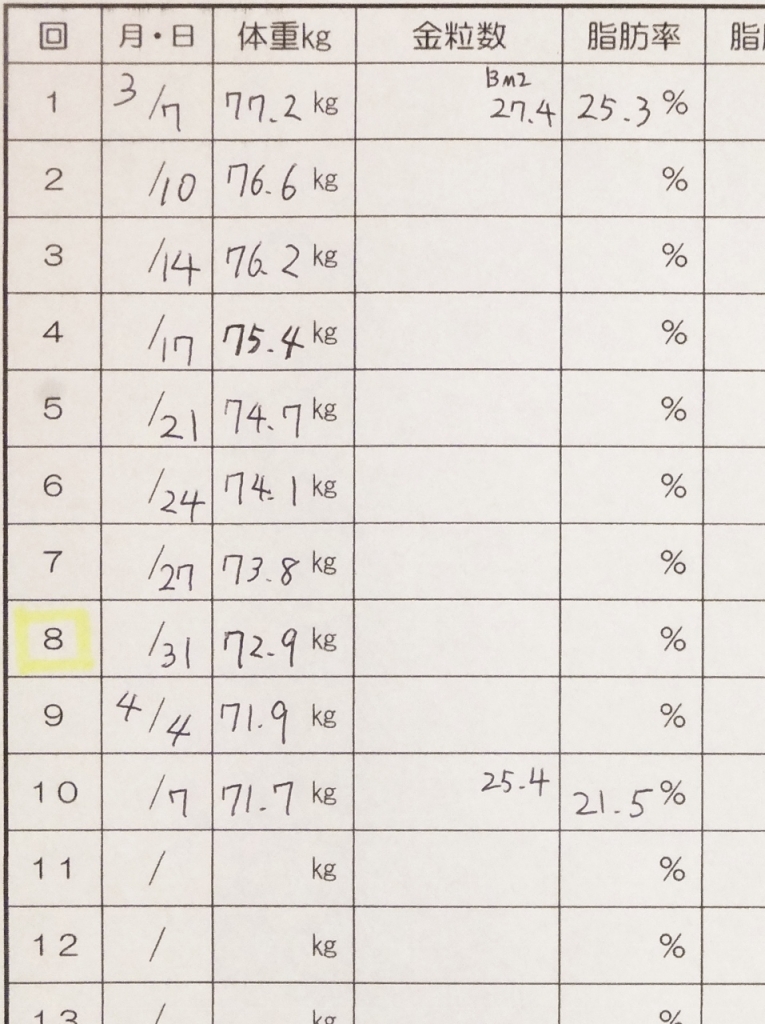 回 月・日 体重kg 金粒数 脂肪率
1 3/7 77.2 kg BMI 27.4 25.3 %
2 /10 76.6 kg %
3 /14 76.2 kg %
4 /17 75.4 kg %
5 /21 74.7 kg %
6 /24 74.1 kg %
7 /27 73.8 kg %
8 /31 72.9 kg %
9 4/4 71.9 kg %
10 /7 71.7 kg 25.4 21.5 %
11 / kg %
12 / kg %
13 / kg %